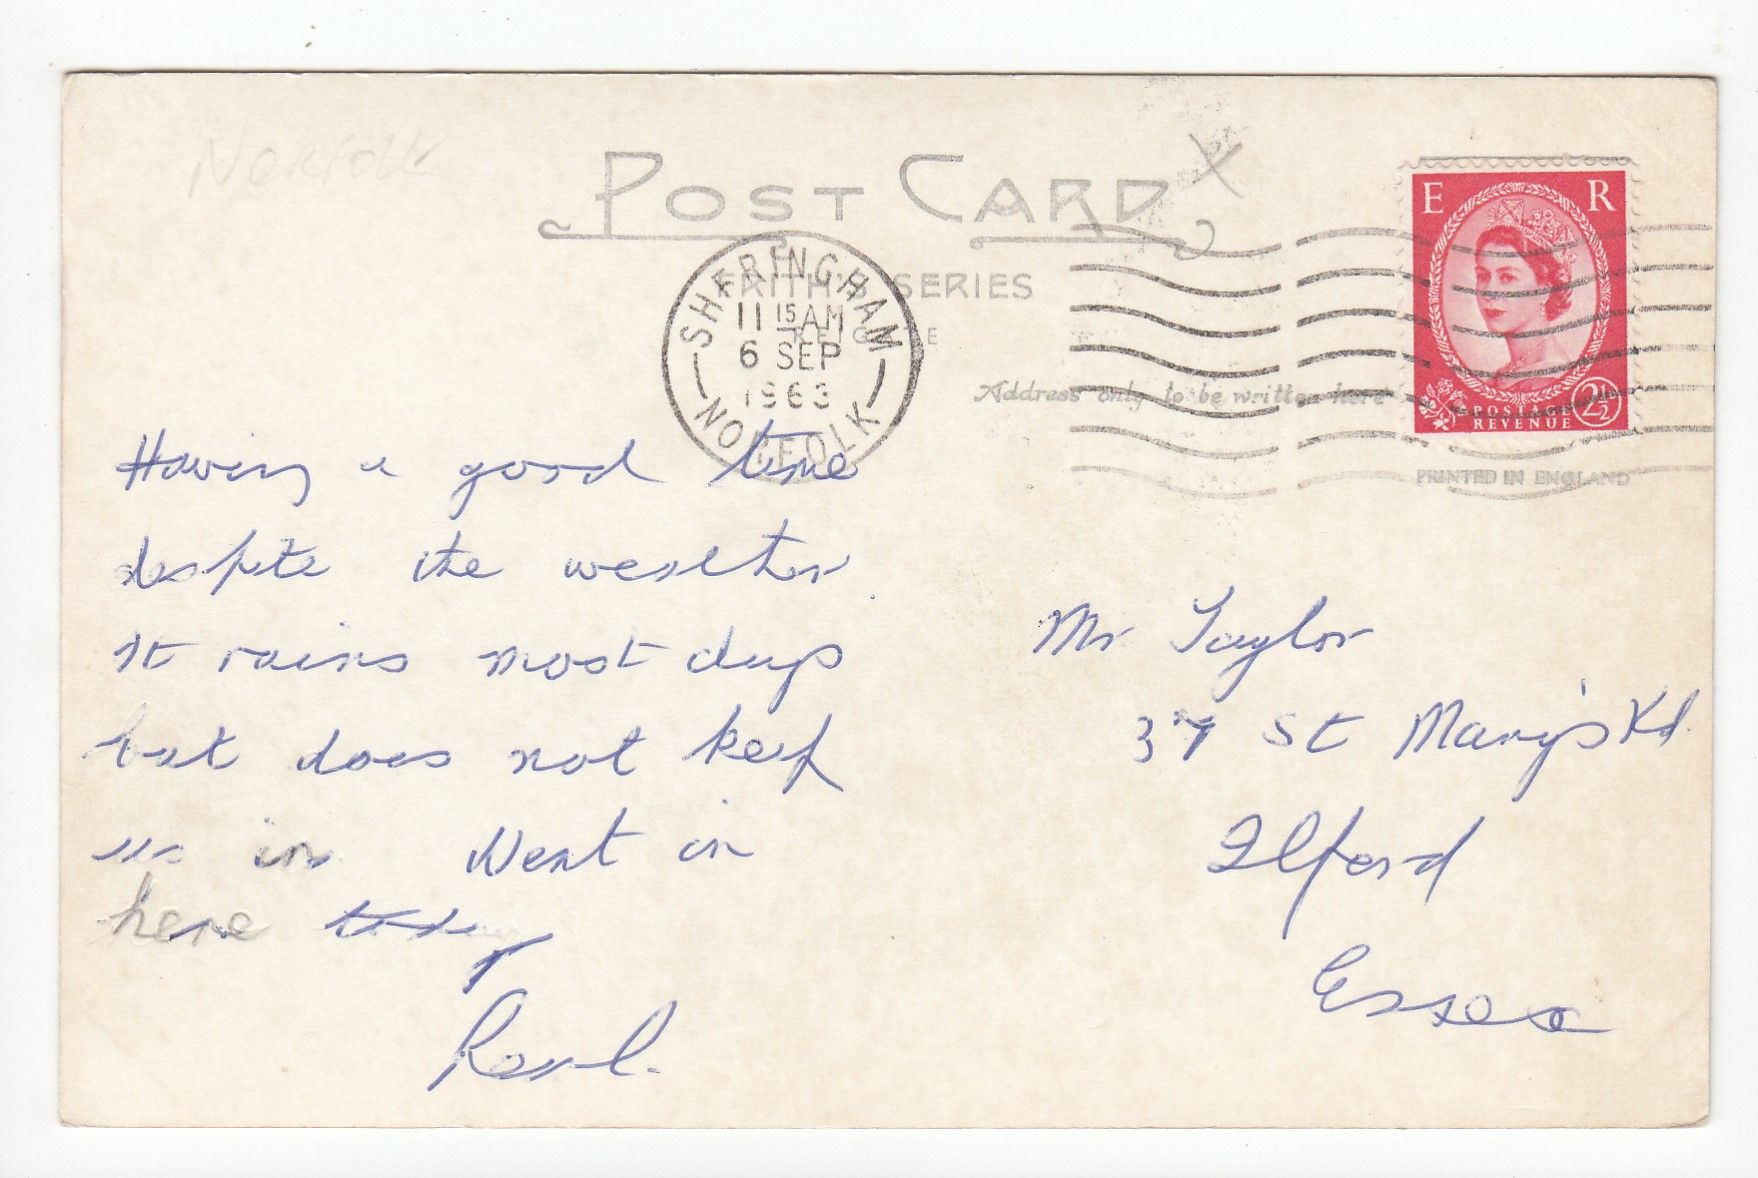 Norfolk
POST CARD
FRITH'S SERIES
REIGATE
SHERINGHAM
11 15 AM
6 SEP
1963
NORFOLK
Address only to be written here
E R
POSTAGE
REVENUE 2½
PRINTED IN ENGLAND
Having a good time
despite the weather.
It rains most days
but does not keep
us in. Went in
here today
Paul.
Mr Taylor
37 St Mary's Rd.
Ilford
Essex